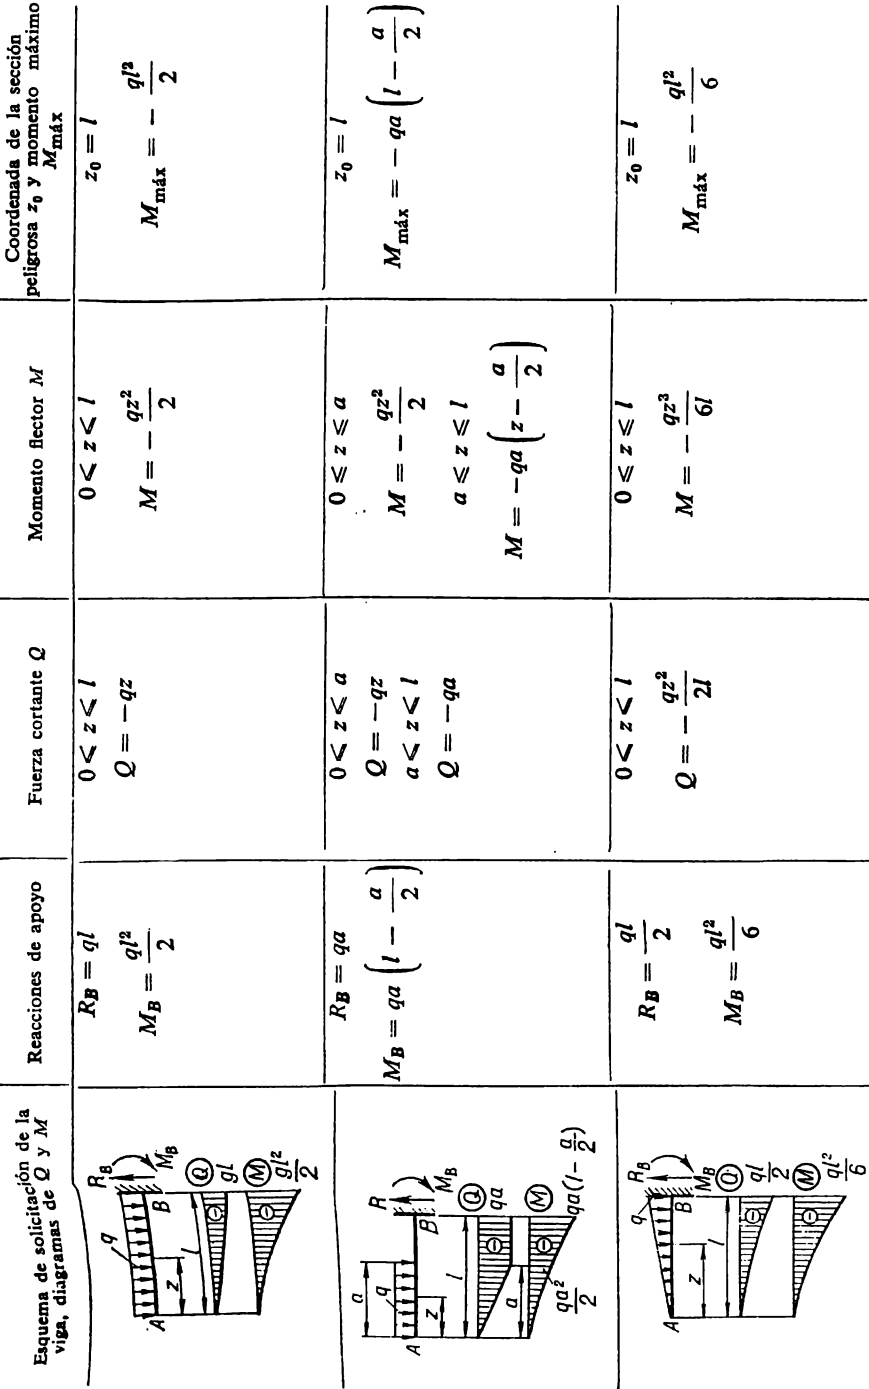 Esquema de solicitación de la
viga, diagramas de Q y M
Reacciones de apoyo
Fuerza cortante Q
Momento flector M
Coordenada de la sección
peligrosa z₀ y momento máximo
Mmáx
q
R_B
M_B
A
B
z
l
Q
gl
M
gl²/2
R_B = ql
M_B = ql²/2
0 ⩽ z ⩽ l
Q = −qz
0 ⩽ z ⩽ l
M = − qz²/2
z₀ = l
Mmáx = − ql²/2
a
q
R
M_B
A
B
z
l
a
Q
qa
M
qa²/2
qa(l − a/2)
R_B = qa
M_B = qa (l − a/2)
0 ⩽ z ⩽ a
Q = −qz
a ⩽ z ⩽ l
Q = −qa
0 ⩽ z ⩽ a
M = − qz²/2
a ⩽ z ⩽ l
M = −qa (z − a/2)
z₀ = l
Mmáx = − qa (l − a/2)
q
R_B
M_B
A
B
z
l
Q
ql/2
M
ql²/6
R_B = ql/2
M_B = ql²/6
0 ⩽ z ⩽ l
Q = − qz²/2l
0 ⩽ z ⩽ l
M = − qz³/6l
z₀ = l
Mmáx = − ql²/6